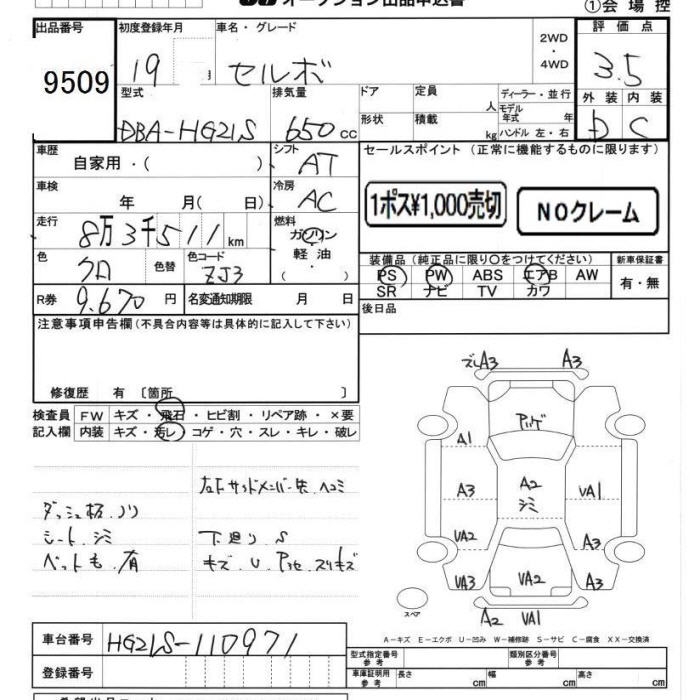 オークション出品申込書
①会場控
出品番号 初度登録年月 車名・グレード 2WD・4WD 評価点
9509 19 月 セルボ 3.5
型式 排気量 ドア 定員 人 ディーラー・並行 外装 内装
DBA-HG21S 650cc 形状 積載 kg モデル年式 年 ハンドル 左・右 D C
車歴 自家用・( ) シフト AT セールスポイント (正常に機能するものに限ります)
車検 年 月( 日) 冷房 AC
1ポス¥1,000売切 NOクレーム
走行 8万3千511km 燃料 ガソリン 軽油・( )
色 クロ 色替 色コード ZJ3
装備品 (純正品に限り○をつけてください) 新車保証書
PS PW ABS エアB AW 有・無
SR ナビ TV カワ
R券 9,670円 名変通知期限 月 日
後日品
注意事項申告欄(不具合内容等は具体的に記入して下さい)
修復歴 有 〔箇所 〕
検査員 FW キズ・飛石・ヒビ割・リペア跡・×要
記入欄 内装 キズ・汚レ・コゲ・穴・スレ・キレ・破レ
左右サイドメンバー先 ヘコミ
ダッシュ板、ノリ
シート、シミ 下廻り S
ペットも、有 キズ、U、スリキズ
A3 A3
A1
A3 A2 シミ UA1
UA2 A3
UA3 UA2 A3
スペア
A2 UA1
A-キズ E-エクボ U-凹み W-補修跡 S-サビ C-腐食 XX-交換済
車台番号 HG21S-110971
型式指定番号 参考 類別区分番号 参考
登録番号
車庫証明用 参考 長さ cm 幅 cm 高さ cm